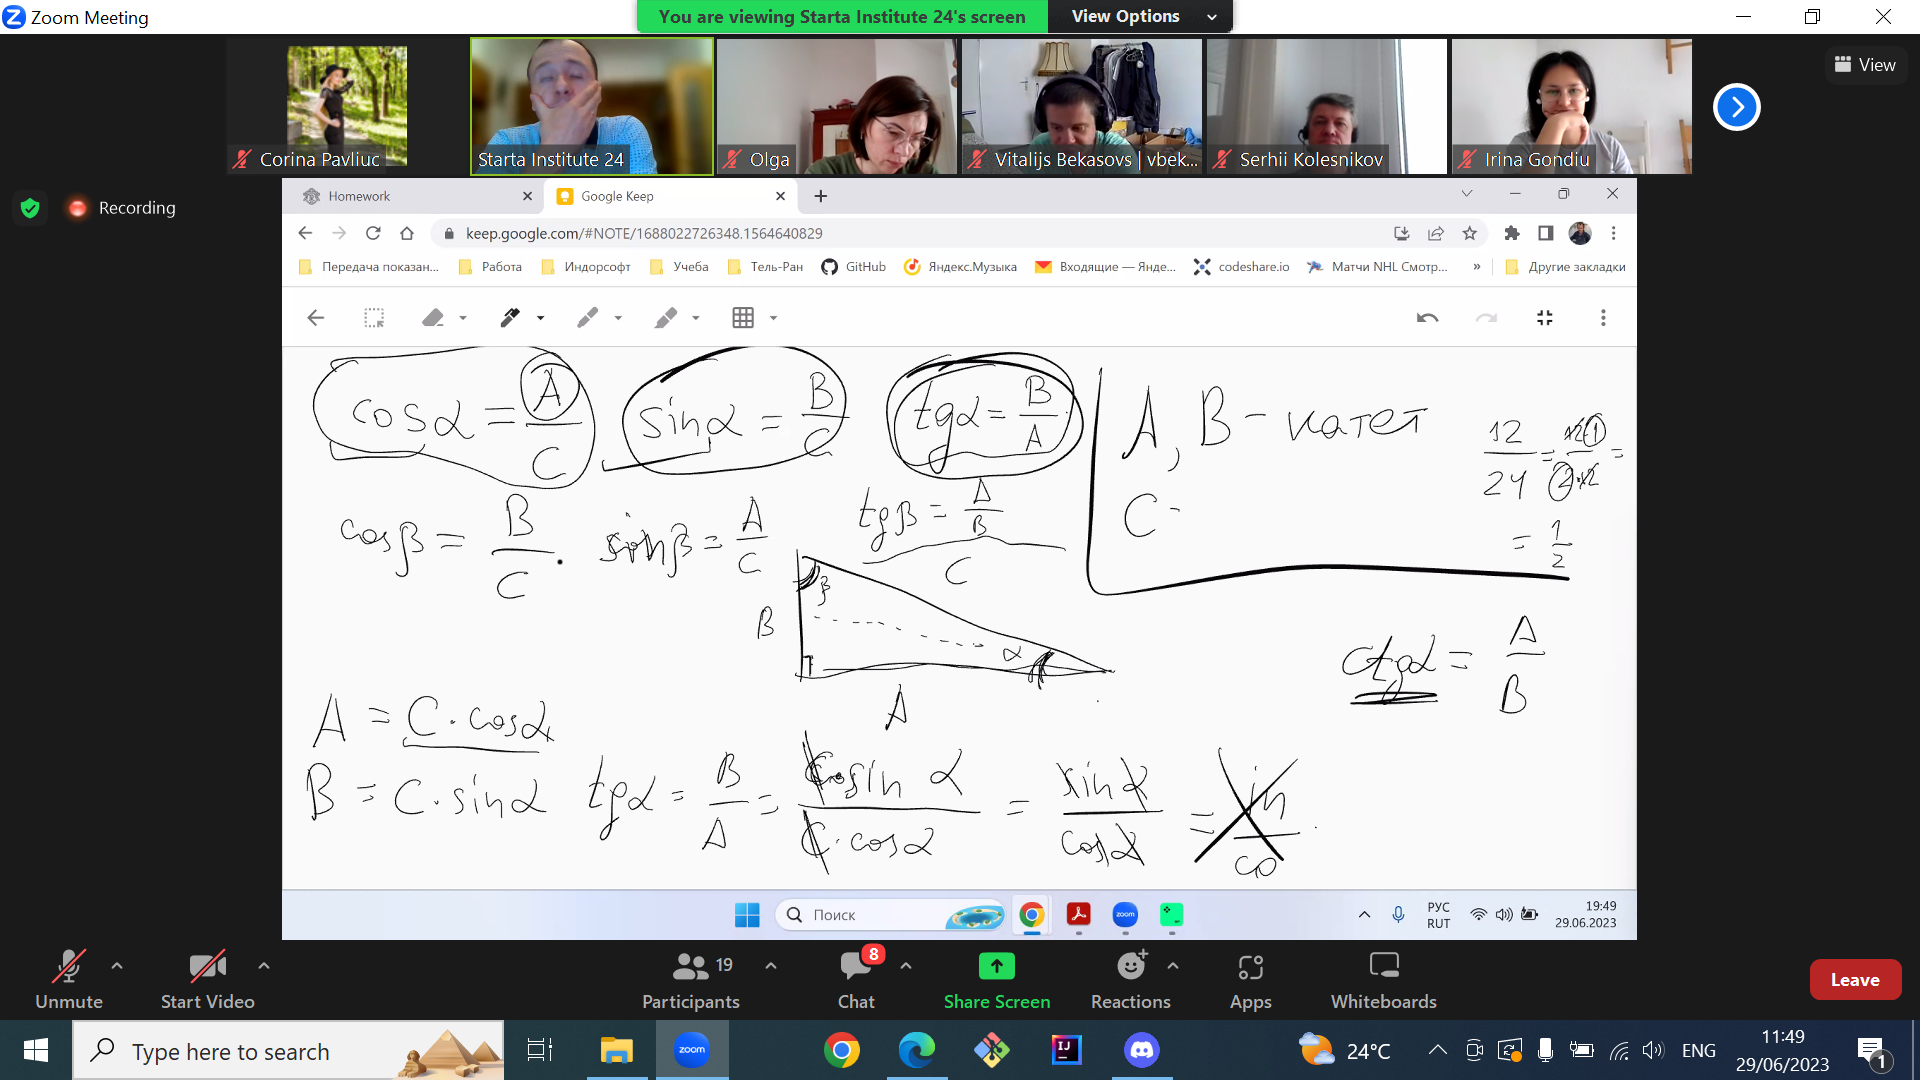 Zoom Meeting
You are viewing Starta Institute 24's screen
View Options
Corina Pavliuc
Starta Institute 24
Olga
Vitalijs Bekasovs | vbek...
Serhii Kolesnikov
Irina Gondiu
View
Recording
Homework
Google Keep
keep.google.com/#NOTE/1688022726348.1564640829
Передача показан...
Работа
Индорсофт
Учеба
Тель-Ран
GitHub
Яндекс.Музыка
Входящие — Янде...
codeshare.io
Матчи NHL Смотр...
»
Другие закладки
cosα = A/C
sinα = B/C
tgα = B/A
A, B - катет
C -
12/24 =
= 1/2
cosβ = B/C
sinβ = A/C
tgβ = A/B
C
β
B
α
A
ctgα = A/B
A = C·cosα
B = C·sinα
tgα = B/A = C·sinα/C·cosα = sinα/cosα = in/co
Поиск
zoom
РУС
RUT
19:49
29.06.2023
Unmute
Start Video
Participants
19
Chat
8
Share Screen
Reactions
Apps
Whiteboards
Leave
Type here to search
zoom
IJ
24°C
ENG
11:49
29/06/2023
1